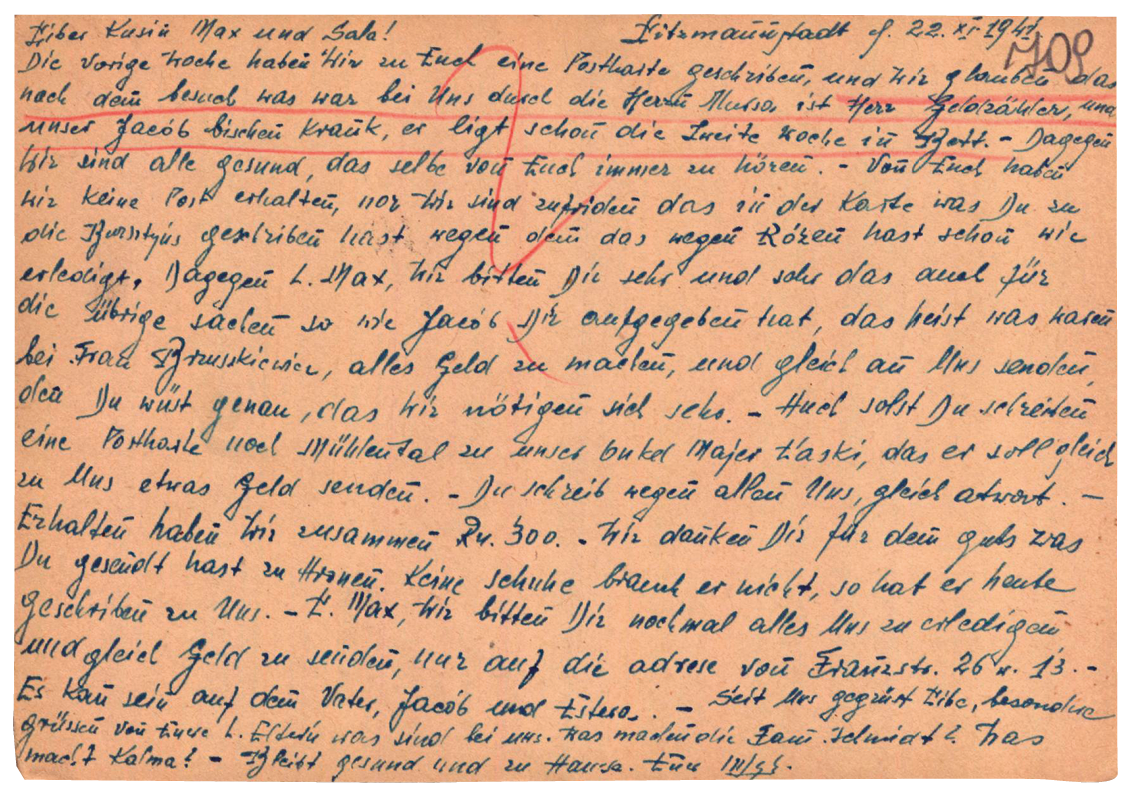 Liber Kusin Max und Sala! Litzmannstadt d. 22. XI. 1941
709
Die vorige woche haben wir zu Euch eine Postkarte geschriben, und wir glauben das
nach dem besuch was war bei Uns durch die Herrn Mursa ist Herr Geldzähler, und
unser Jacób bischen Krank, er ligt schon die zweite woche in Bett. - Dagegen
wir sind alle gesund, das selbe von Euch immer zu hören. - Von Euch haben
wir keine Post erhalten, nor wir sind zufriden das in der Karte was Du zu
die Bursztyns geschriben hast wegen dem das wegen Rózen hast schon wie
erledigt. Dagegen L. Max, wir bitten Dir sehr und sehr das auch für
die übrige sachen so wie Jacób Dir aufgegeben hat, das heist was waren
bei Frau Bruszkiewicz, alles Geld zu machen, und gleich an Uns senden,
den Du wüst genau, das wir nötigen sich sehr. - Auch solst Du schreiben
eine Postkarte noch Mühlental zu unser onkel Majer Łaski, das er soll gleich
zu Uns etwas Geld senden. - Du schreib wegen allen Uns, gleich atwort. -
Erhalten haben wir zusammen RM. 300. - Wir danken Dir für dem guts was
Du gesendt hast zu Aronen. Keine schuhe brauch er nicht, so hat er heute
geschriben zu Uns. - L. Max, wir bitten Dir nochmal alles Uns zu erledigen
und gleich Geld zu senden, nur auf die adrese von Franzstr. 26 w. 13. -
Es kan sein auf dem Vater, Jacób und Estera. - Seit Uns gegrüst Libe, besondere
grüssen von Eure L. Eltern was sind bei uns. Was machen die Fam. Schmidt? Was
macht Kalma? - Bleibt gesund und zu Hause. Eure